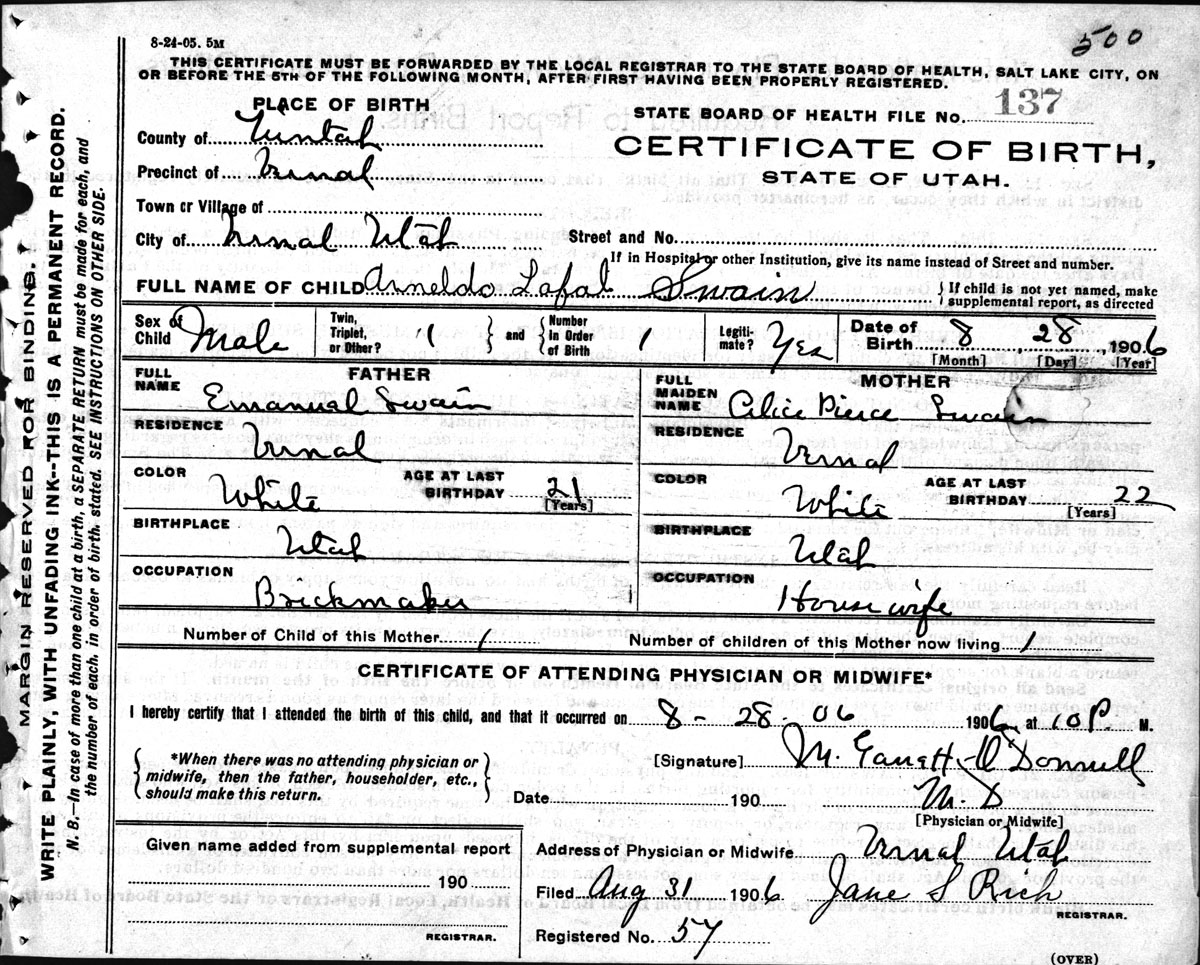 500
8-24-05. 5M
THIS CERTIFICATE MUST BE FORWARDED BY THE LOCAL REGISTRAR TO THE STATE BOARD OF HEALTH, SALT LAKE CITY, ON
OR BEFORE THE 5TH OF THE FOLLOWING MONTH, AFTER FIRST HAVING BEEN PROPERLY REGISTERED.
MARGIN RESERVED FOR BINDING.
WRITE PLAINLY, WITH UNFADING INK--THIS IS A PERMANENT RECORD.
N. B.—In case of more than one child at a birth, a SEPARATE RETURN must be made for each, and
the number of each, in order of birth, stated. SEE INSTRUCTIONS ON OTHER SIDE.
PLACE OF BIRTH
County of Uintah
Precinct of Vernal
Town or Village of
City of Vernal Utah
STATE BOARD OF HEALTH FILE No. 137
CERTIFICATE OF BIRTH,
STATE OF UTAH.
Street and No.
If in Hospital or other Institution, give its name instead of Street and number.
FULL NAME OF CHILD Arneldo Lafal Swain { If child is not yet named, make
supplemental report, as directed
Sex of Child Male
Twin, Triplet, or Other? 1 } and { Number In Order of Birth 1
Legitimate? Yes
Date of Birth 8 28 1906
[Month] [Day] [Year]
FATHER
FULL NAME Emanual Swain
RESIDENCE Vernal
COLOR White AGE AT LAST BIRTHDAY 21 [Years]
BIRTHPLACE Utah
OCCUPATION Brickmaker
MOTHER
FULL MAIDEN NAME Alice Pierce Swain
RESIDENCE Vernal
COLOR White AGE AT LAST BIRTHDAY 22 [Years]
BIRTHPLACE Utah
OCCUPATION House wife
Number of Child of this Mother 1 Number of children of this Mother now living 1
CERTIFICATE OF ATTENDING PHYSICIAN OR MIDWIFE*
I hereby certify that I attended the birth of this child, and that it occurred on 8 - 28 - 06 1906, at 10 P. M.
{ *When there was no attending physician or
midwife, then the father, householder, etc.,
should make this return. }
[Signature] M. Garrett-O Donnell
Date 190 M. D
[Physician or Midwife]
Given name added from supplemental report
190
REGISTRAR.
Address of Physician or Midwife Vernal Utah
Filed Aug 31 1906 Jane S Rich
REGISTRAR.
Registered No. 57
(OVER)